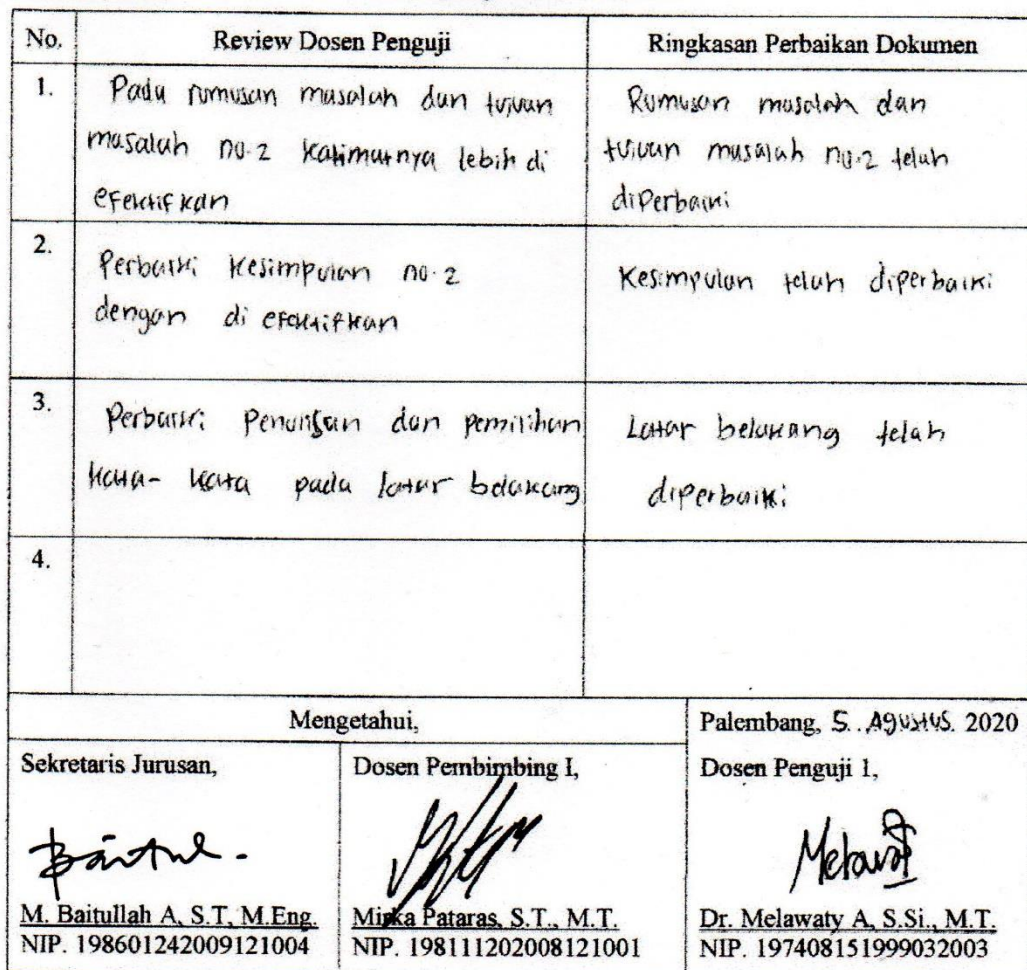 No. Review Dosen Penguji Ringkasan Perbaikan Dokumen
1. Pada rumusan masalah dan tujuan
masalah no.2 kalimatnya lebih di
efektifkan
Rumusan masalah dan
tujuan masalah no.2 telah
diperbaiki
2. Perbaiki kesimpulan no.2
dengan di efektifkan
Kesimpulan telah diperbaiki
3. Perbaiki penulisan dan pemilihan
kata-kata pada latar belakang
Latar belakang telah
diperbaiki
4.
Mengetahui,
Palembang, 5 Agustus 2020
Sekretaris Jurusan,
M. Baitullah A, S.T, M.Eng.
NIP. 198601242009121004
Dosen Pembimbing I,
Mirka Pataras, S.T., M.T.
NIP. 198111202008121001
Dosen Penguji 1,
Dr. Melawaty A, S.Si., M.T.
NIP. 197408151999032003